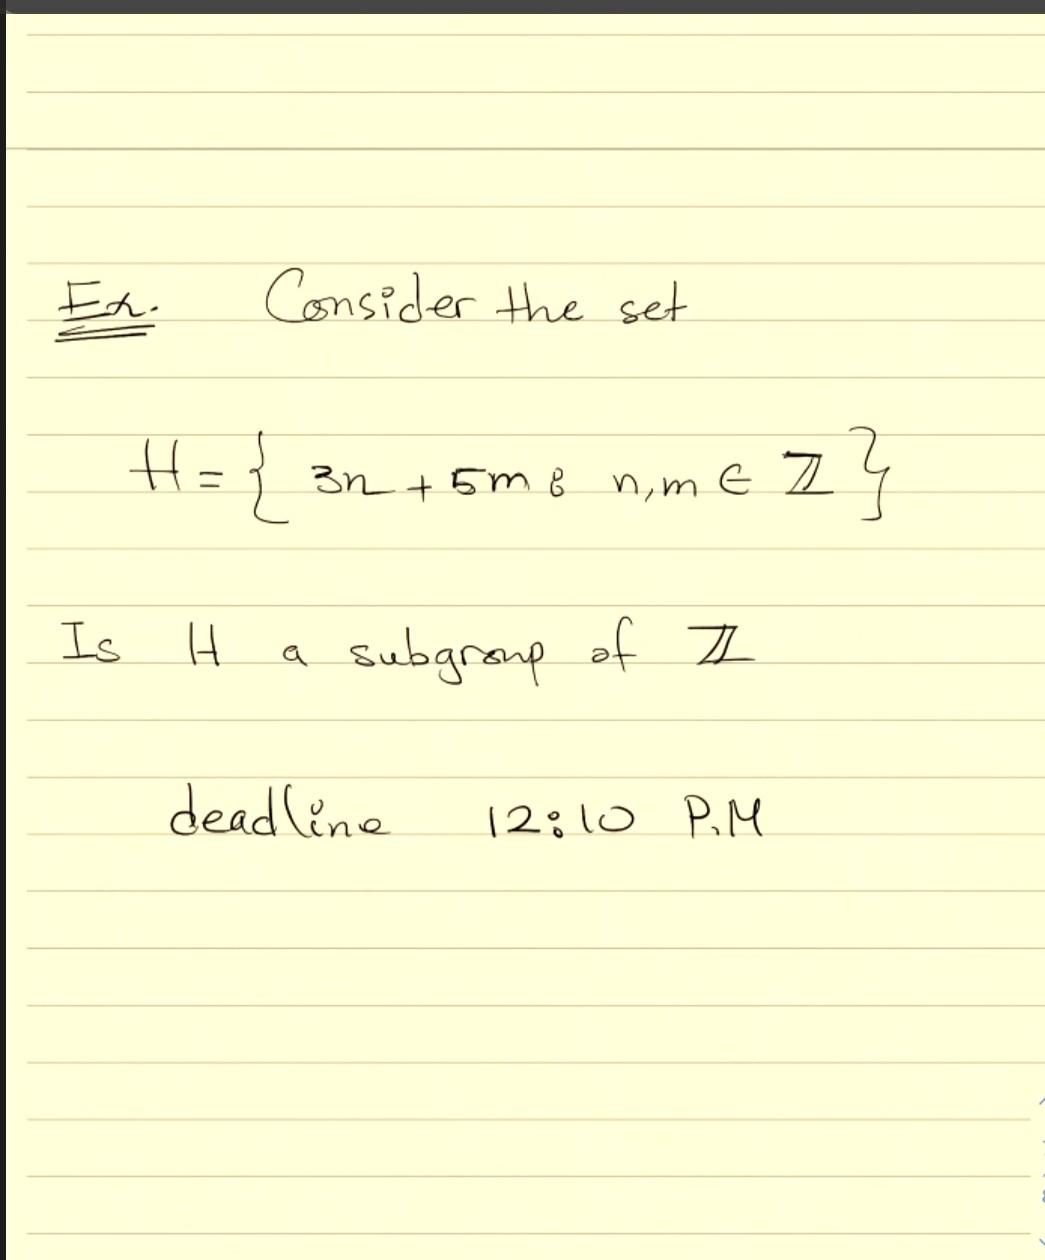 Ex. Consider the set
H = { 3n + 5m : n,m ∈ ℤ }
Is H a subgroup of ℤ
deadline 12:10 P.M